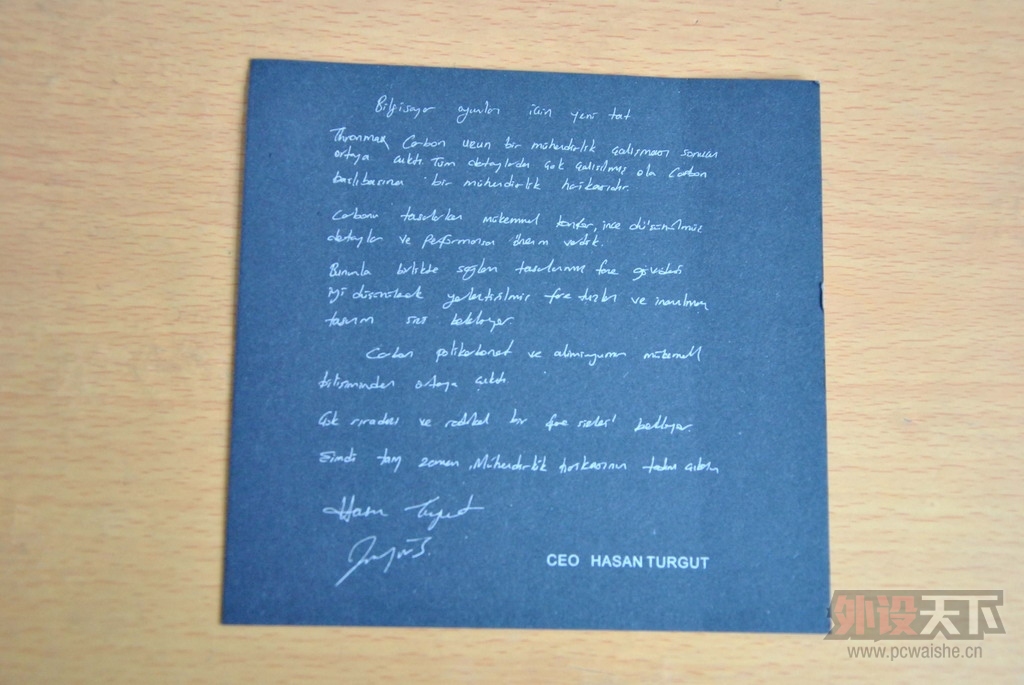 Bilgisayar oyunları için yeni tat
Thronmax Carbon uzun bir mühendislik çalışması sonucu
ortaya çıktı. Tüm detaylardan çok çalışılmış ola Carbon
başlıbaşına bir mühendislik harikasıdır.
Carbonu tasarlarken mükemmel konfor, ince düşünülmüş
detaylar ve performansa önem verdik.
Bununla birlikte sağlam tasarlanmış fare gövdesi
iyi düşünülerek yerleştirilmiş fare tuşları ve inanılmaz
tasarım sizi bekliyor.
Carbon polikarbonat ve aliminyumun mükemell
bitişiminden ortaya çıktı
Çok sıradışı ve radikal bir fare sizleri bekliyor.
Şimdi tam zamanı, Mühendislik harikasının tadını çıkarın
Hasan Turgut
CEO HASAN TURGUT
外设天下
www.pcwaishe.cn